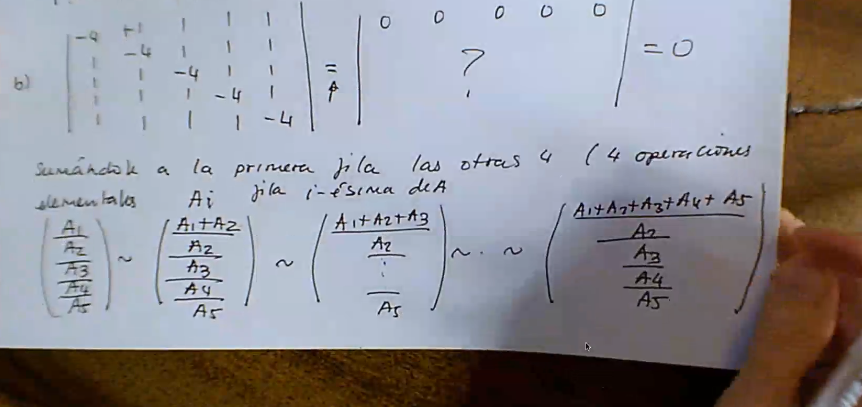 b) | -4 +1 1 1 1 | = | 0 0 0 0 0 | = 0
| 1 -4 1 1 1 | ↑ | ? |
| 1 1 -4 1 1 |
| 1 1 1 -4 1 |
| 1 1 1 1 -4 |
sumándole a la primera fila las otras 4 ( 4 operaciones
elementales Ai fila i-ésima de A
( A1 / A2 / A3 / A4 / A5 ) ~ ( A1+A2 / A2 / A3 / A4 / A5 ) ~ ( A1+A2+A3 / A2 / ⋮ / A5 ) ~ . . ~ ( A1+A2+A3+A4+A5 / A2 / A3 / A4 / A5 )